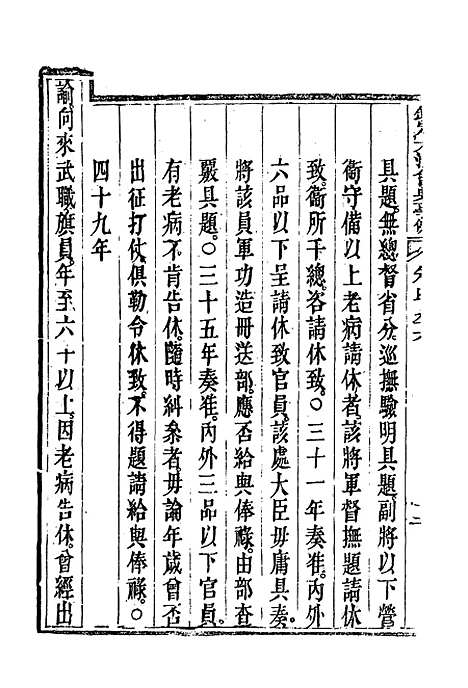 具題。無總督省分。巡撫驗明具題。副將以下營
衞守備以上老病請休者。該將軍督撫題請休
致。衞所千總。咨請休致。○三十一年奏准。內外
六品以下呈請休致官員。該處大臣毋庸具奏。
將該員軍功造冊送部。應否給與俸祿。由部查
覈具題。○三十五年奏准。內外三品以下官員。
有老病不肯告休。隨時糾參者。毋論年歲曾否
出征打仗。俱勒令休致。不得題請給與俸祿。○
四十九年
諭向來武職旗員。年至六十以上。因老病告休。曾經出